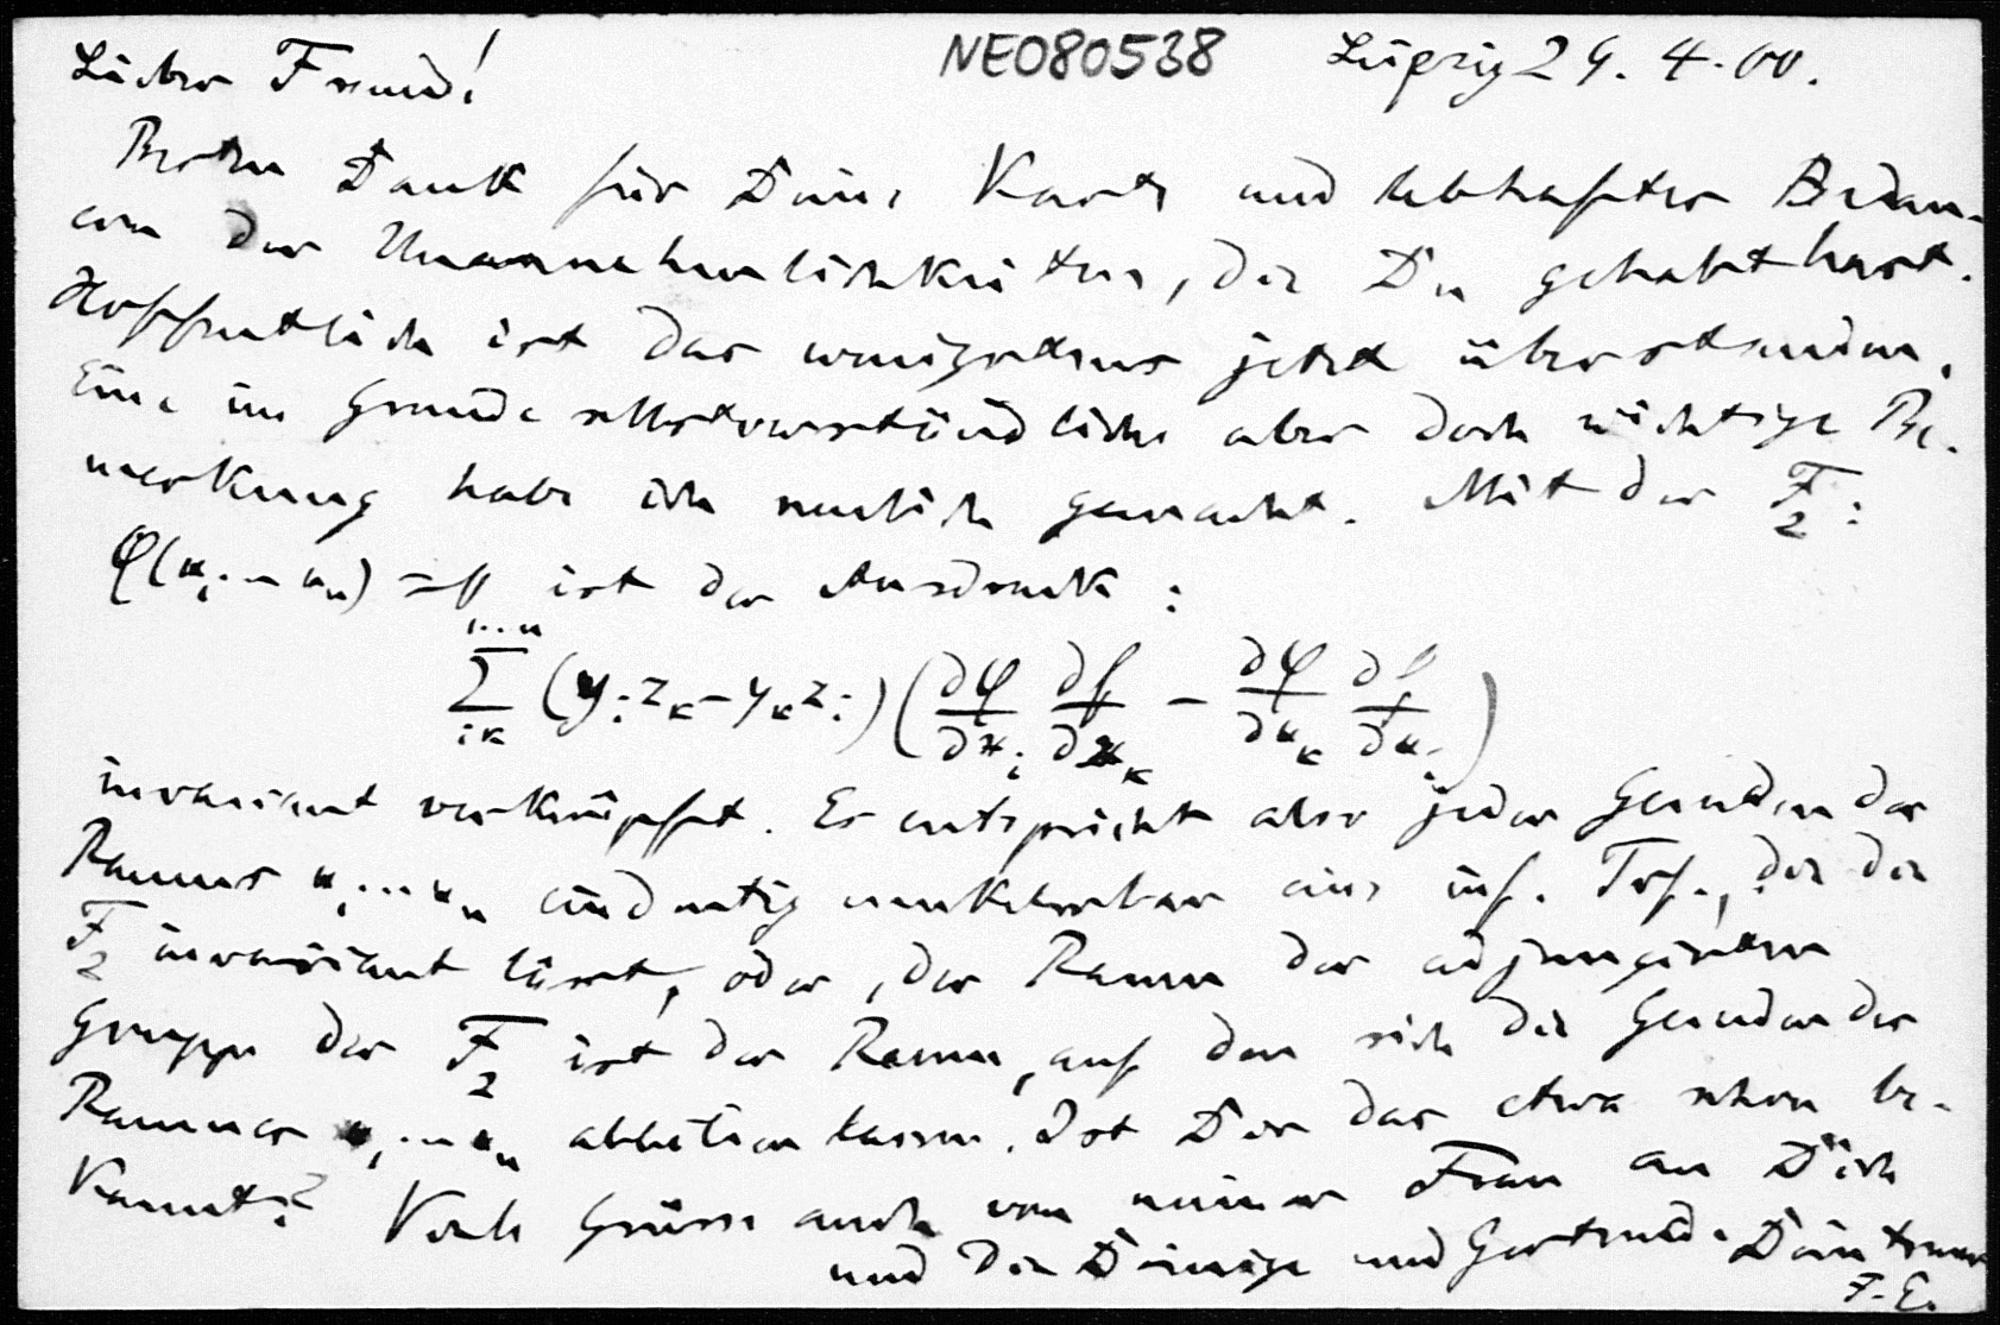 Lieber Freund! NE080538 Leipzig 29. 4. 00.
Besten Dank für Deine Karte und lebhaftes Bedau-
ern der Unannehmlichkeiten, die Du gehabt hast.
Hoffentlich ist das wenigstens jetzt überstanden.
Eine im Grunde selbstverständliche aber doch wichtige Be-
merkung habe ich neulich gemacht. Mit der F₂:
φ(x₁…xₙ) = 0 ist der Ausdruck:
∑ᵢₖ¹···ⁿ (yᵢzₖ − yₖzᵢ) (∂φ/∂xᵢ ∂f/∂xₖ − ∂φ/∂xₖ ∂f/∂xᵢ)
invariant verknüpft. Es entspricht also jeder Geraden des
Raums x₁…xₙ eindeutig umkehrbar eine inf. Trf., die die
F₂ invariant lässt, oder, der Raum der adjungirten
Gruppe der F₂ ist der Raum, auf den sich die Geraden des
Raumes x₁…xₙ abbilden lassen. Ist Dir das etwa schon be-
kannt? Viele Grüsse auch von meiner Frau an Dich
und die Deinige und Gertrud. Dein treuer
F. E.